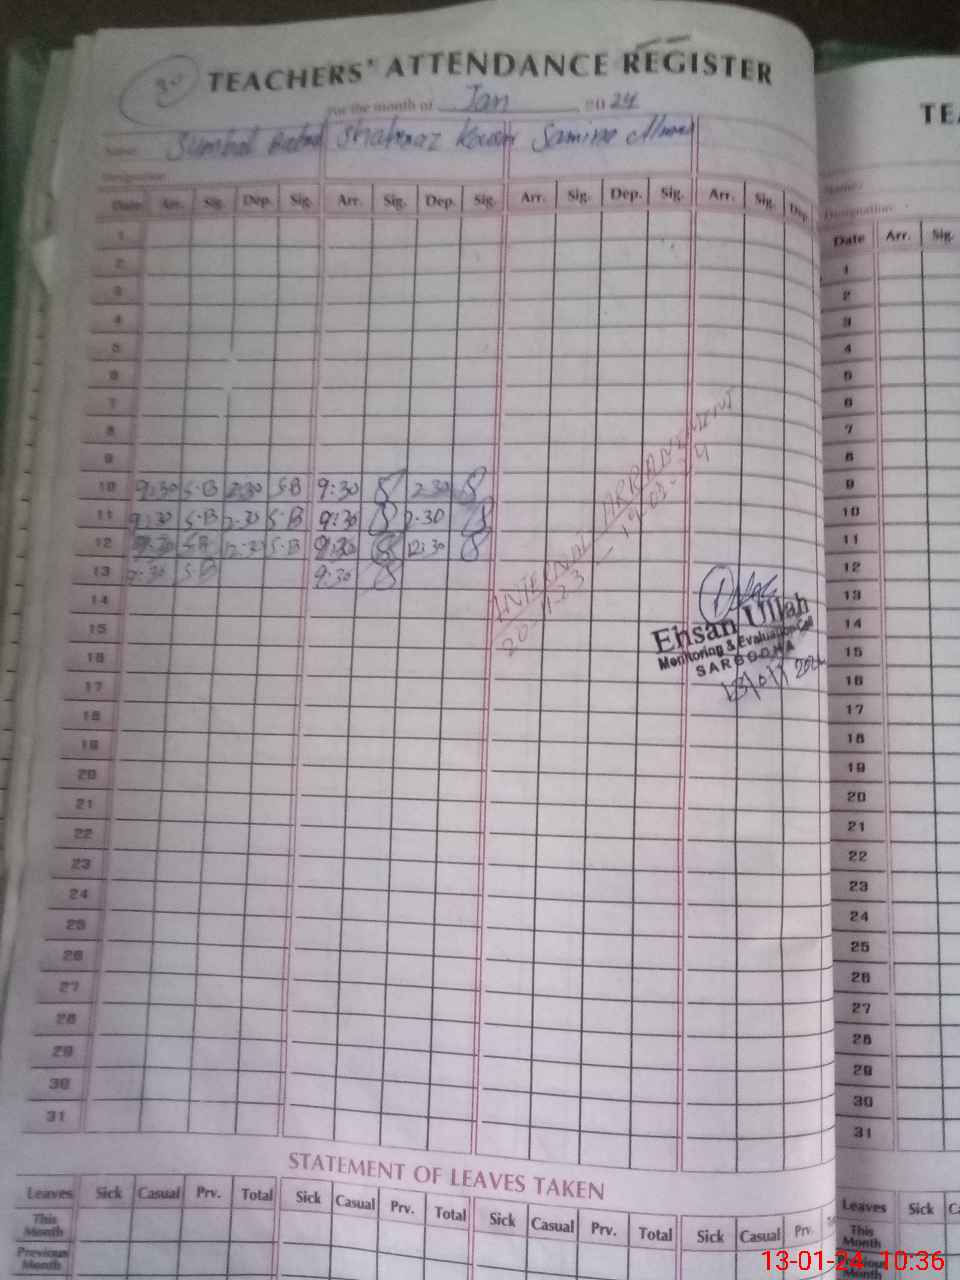 30
TEACHERS' ATTENDANCE REGISTER
For the month of Jan 2024
Name Sumbal Shahnaz Kausar Samina
Designation
Date Arr. Sig. Dep. Sig. Arr. Sig. Dep. Sig. Arr. Sig. Dep. Sig. Arr. Sig. Dep.
1
2
3
4
5
6
7
8
9
10 9:30 S-B 2:30 S-B 9:30 2:30
11 9:30 S-B 2-30 S-B 9:30 2-30
12 9:30 S-B 12-30 S-B 9:30 12:30
13 9:30 S-B 9:30
14
15
16
17
18
19
20
21
22
23
24
25
26
27
28
29
30
31
INTERNAL ARRANGEMENT
Ehsan Ullah
Monitoring & Evaluation Cell
SARGODHA
STATEMENT OF LEAVES TAKEN
Leaves Sick Casual Prv. Total Sick Casual Prv. Total Sick Casual Prv. Total Sick Casual Prv.
This Month
Previous Month
TEA
Name:
Designation
Date Arr. Sig.
1
2
3
4
5
6
7
8
9
10
11
12
13
14
15
16
17
18
19
20
21
22
23
24
25
26
27
28
29
30
31
Leaves Sick
This Month
Previous Month
13-01-24 10:36